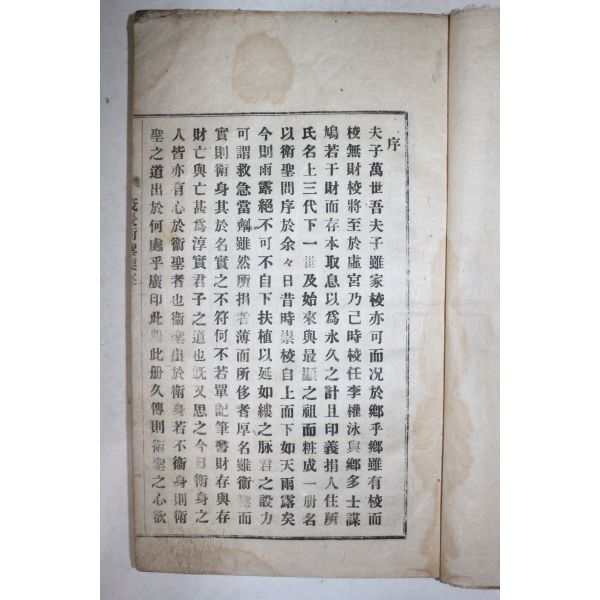 序
夫子萬世吾夫子雖家校亦可而況於鄕乎鄕雖有校而
校無財校將至於虛宮乃己時校任李權泳與鄕多士謀
鳩若干財而存本取息以爲永久之計且印義捐人住所
氏名上三代下一世及始來與最顯之祖而粧成一册名
以衛聖問序於余々日昔時崇校自上而下如天雨露矣
今則雨露絕不可不自下扶植以延如縷之脉君之設力
可謂救急當劑雖然所捐者薄而所侈者厚名雖衛聖而
實則衛身其於名實之不符何不若單記筆書財存與存
財亡與亡甚爲淳實君子之道也旣又思之今日衛身之
人皆亦有心於衛聖者也衛聖出於衛身若不衛身則衛
聖之道出於何處乎廣印此册此册久傳則衛聖之心欲